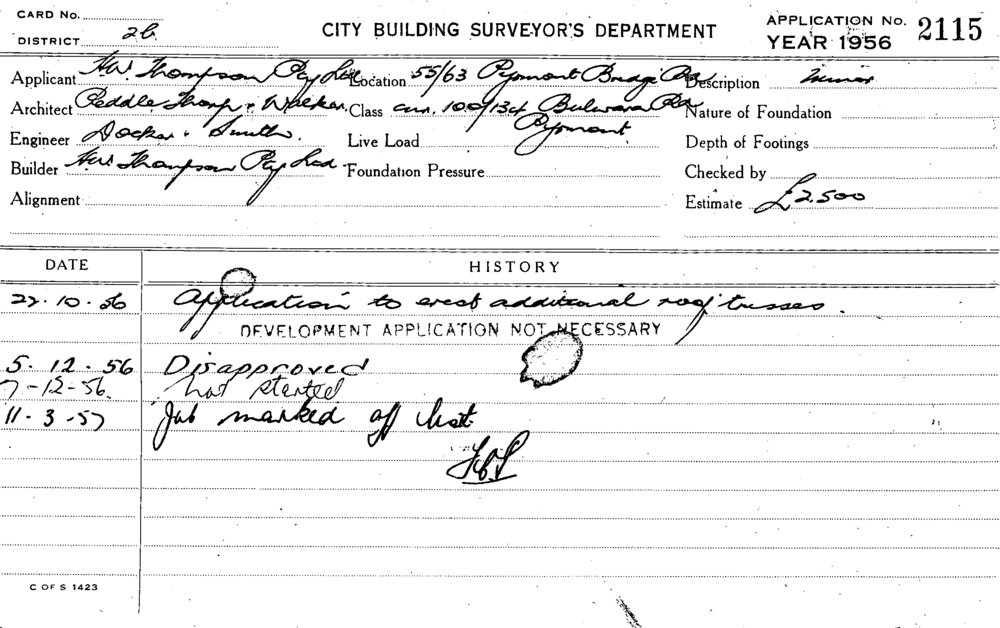 CARD No.
DISTRICT 2b
CITY BUILDING SURVEYOR'S DEPARTMENT
APPLICATION No. 2115
YEAR 1956
Applicant H.W. Thompson Pty Ltd Location 55/63 Pyrmont Bridge Rd Description Minor
Architect Peddle Thorp & Walker Class cnr. 100/134 Bulwara Rd Nature of Foundation
Pyrmont
Engineer Docker & Smith Live Load Depth of Footings
Builder H.W. Thompson Pty Ltd Foundation Pressure Checked by
Alignment Estimate £2,500
DATE HISTORY
22.10.56 Application to erect additional roof trusses.
DEVELOPMENT APPLICATION NOT NECESSARY
5.12.56 Disapproved
7-12-56. Not started
11.3.57 Job marked off list